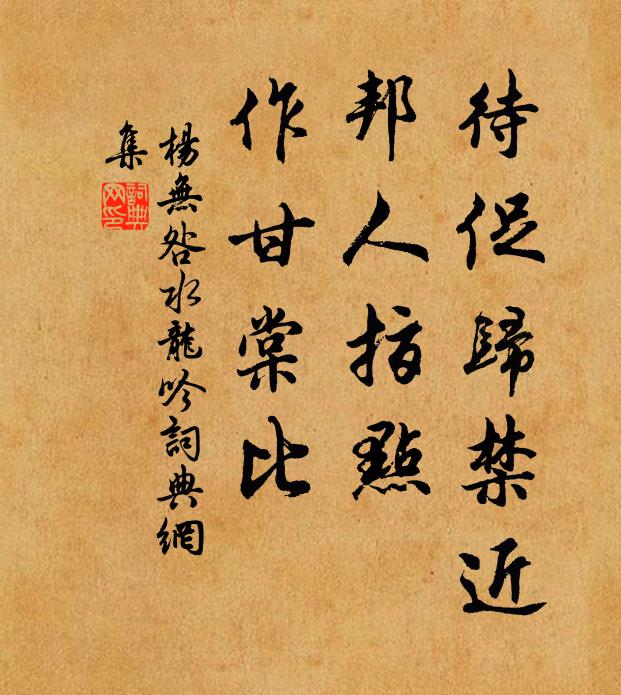 待促歸禁近
邦人指點
作甘棠比
楊無咎水龍吟詞典網
集
詞典網印